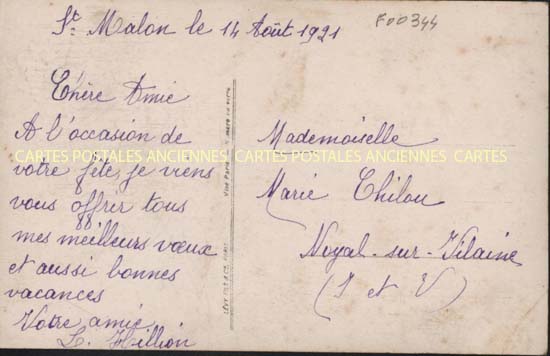 St Malon le 14 Août 1921
F00344
Chère Amie
A l'occasion de
votre fête, je viens
vous offrir tous
mes meilleurs vœux
et aussi bonnes
vacances
Votre amie
L. Hillion
Mademoiselle
Marie Chilou
Noyal-sur-Vilaine
(I et V)
CARTES POSTALES ANCIENNES CARTES POSTALES ANCIENNES CARTES